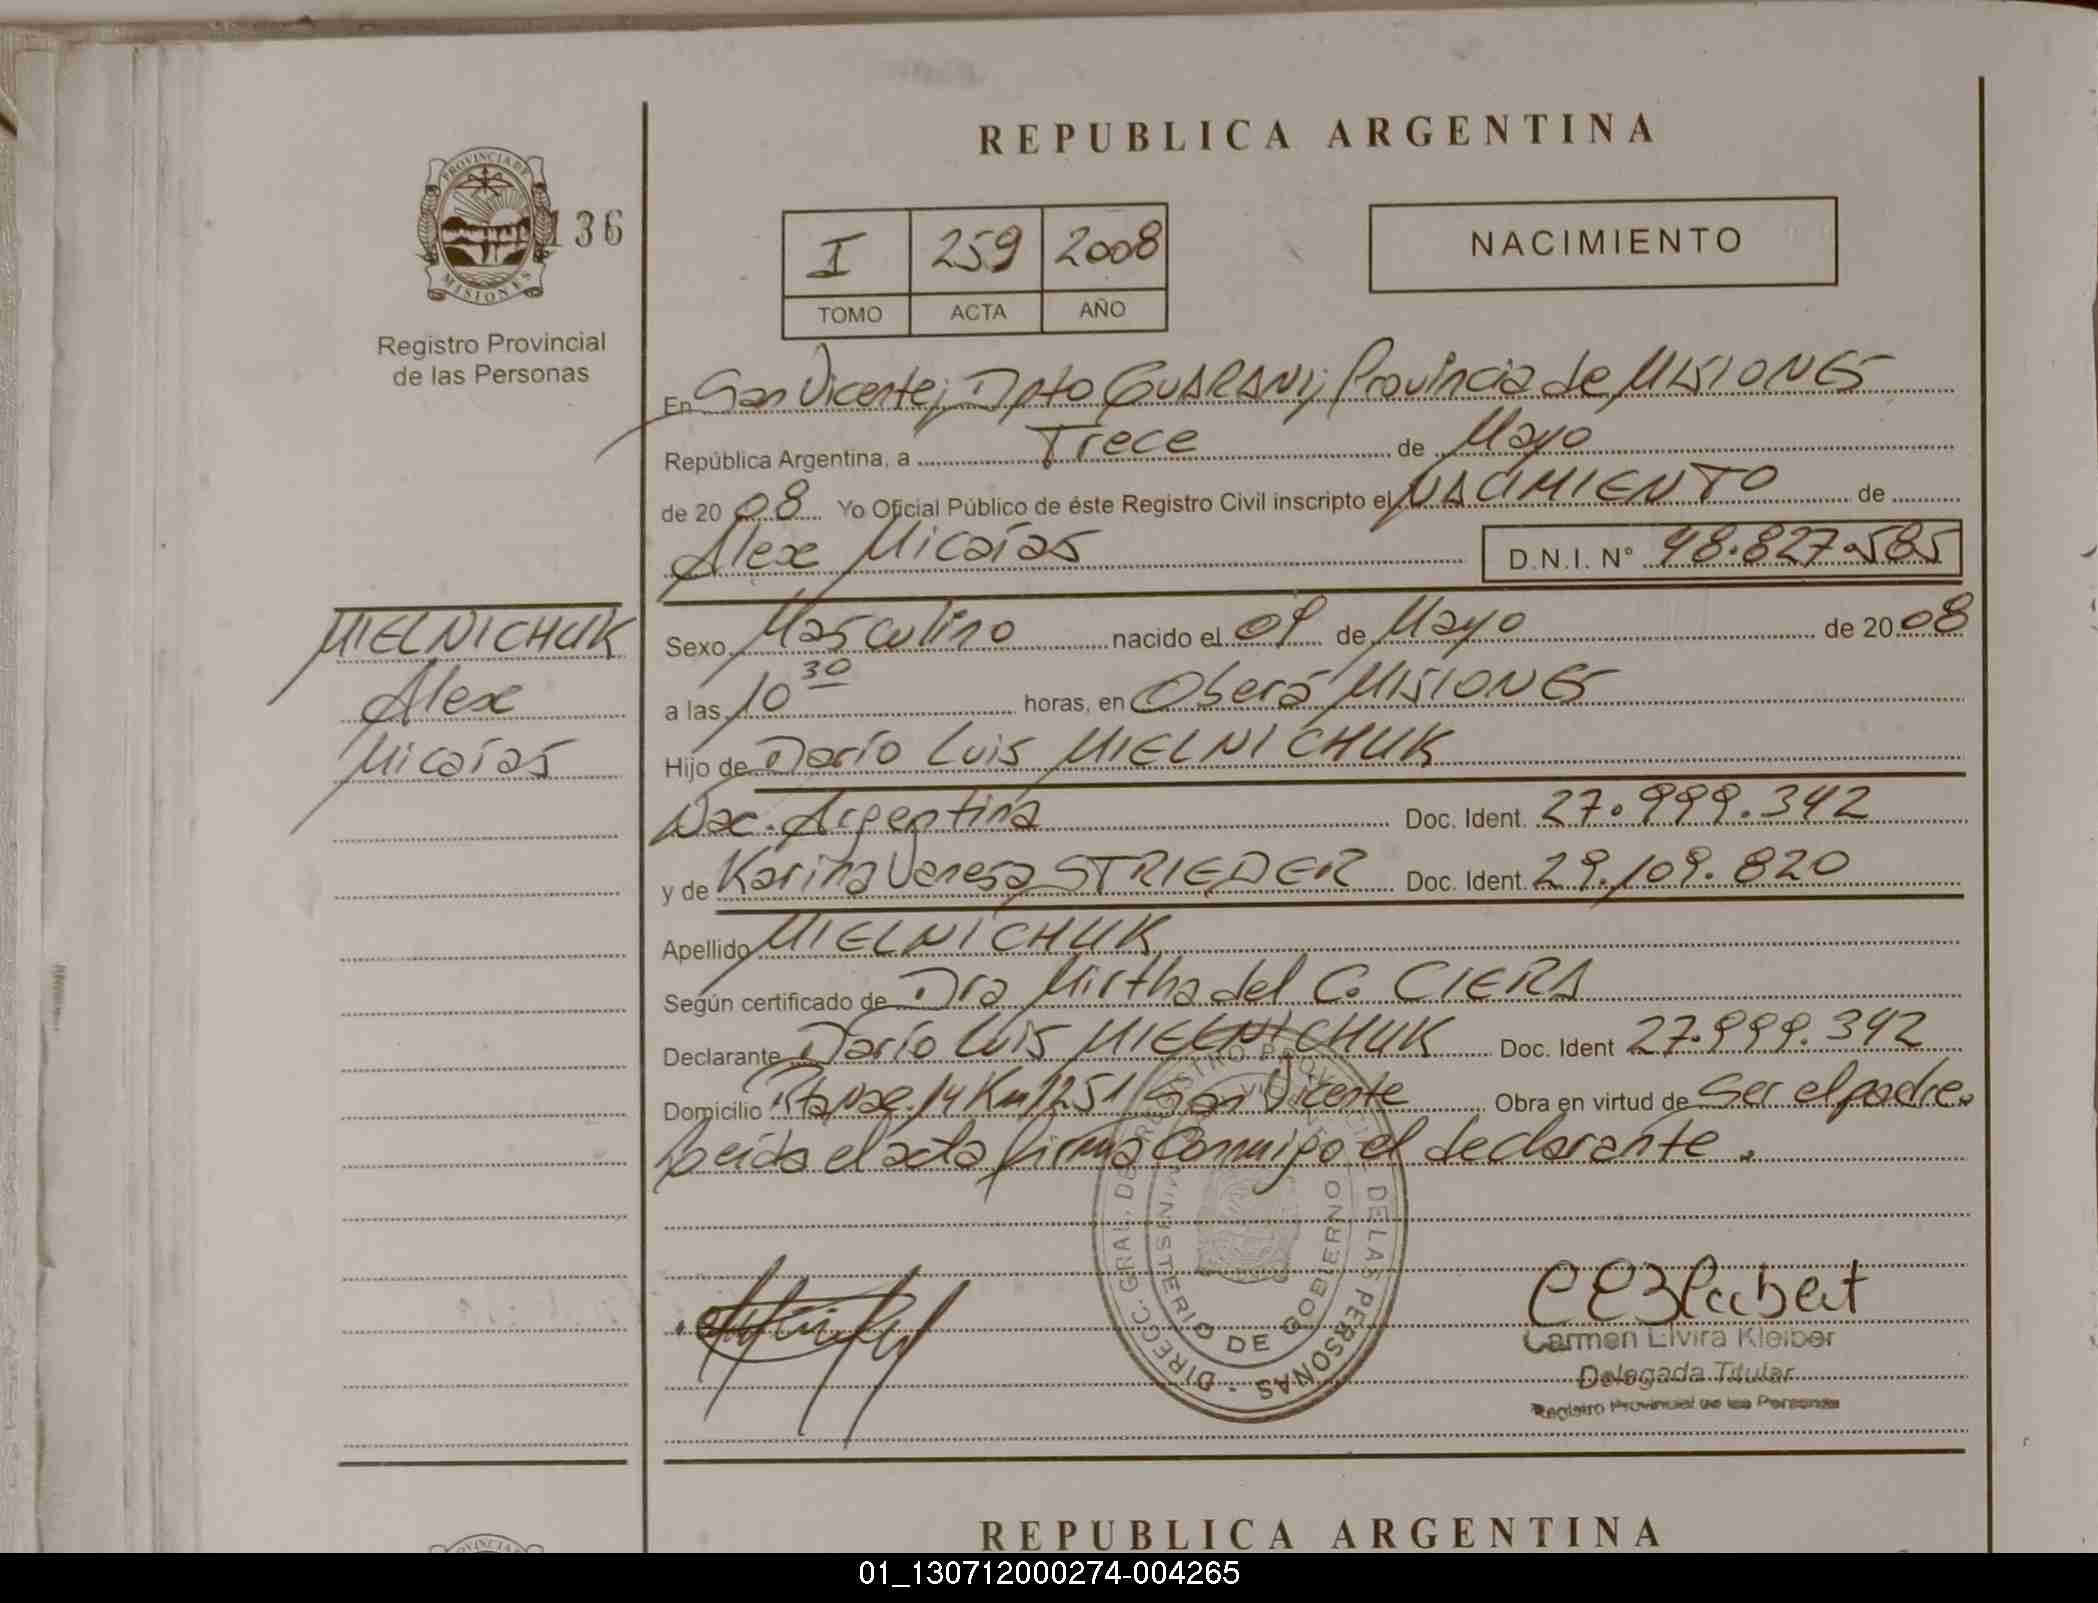 REPUBLICA ARGENTINA
PROVINCIA DE
MISIONES
136
Registro Provincial
de las Personas
I 259 2008
TOMO ACTA AÑO
NACIMIENTO
En San Vicente; Dpto GUARANI; Provincia de MISIONES
República Argentina, a Trece de Mayo
de 2008 Yo Oficial Público de éste Registro Civil inscripto el NACIMIENTO de
Alex Micaías D.N.I. N° 48.827.585
MIELNICHUK
Alex
Micaías
Sexo Masculino nacido el 09 de Mayo de 2008
a las 10 30 horas, en Oberá MISIONES
Hijo de Darío Luis MIELNICHUK
Nac. Argentina Doc. Ident. 27.999.342
y de Karina Vanesa STRIEDER Doc. Ident. 29.109.820
Apellido MIELNICHUK
Según certificado de Dra Mirtha del C. CIERA
Declarante Darío Luis MIELNICHUK Doc. Ident 27.999.342
Domicilio Rta Nac. 14 Km 1251 San Vicente Obra en virtud de Ser el padre.
Leída el acta firma conmigo el declarante.
DIRECC. GRAL. DE REGISTRO PROVINCIAL DE LAS PERSONAS
MINISTERIO DE GOBIERNO
Carmen Elvira Kleiber
Delegada Titular
Registro Provincial de las Personas
REPUBLICA ARGENTINA
01_130712000274-004265